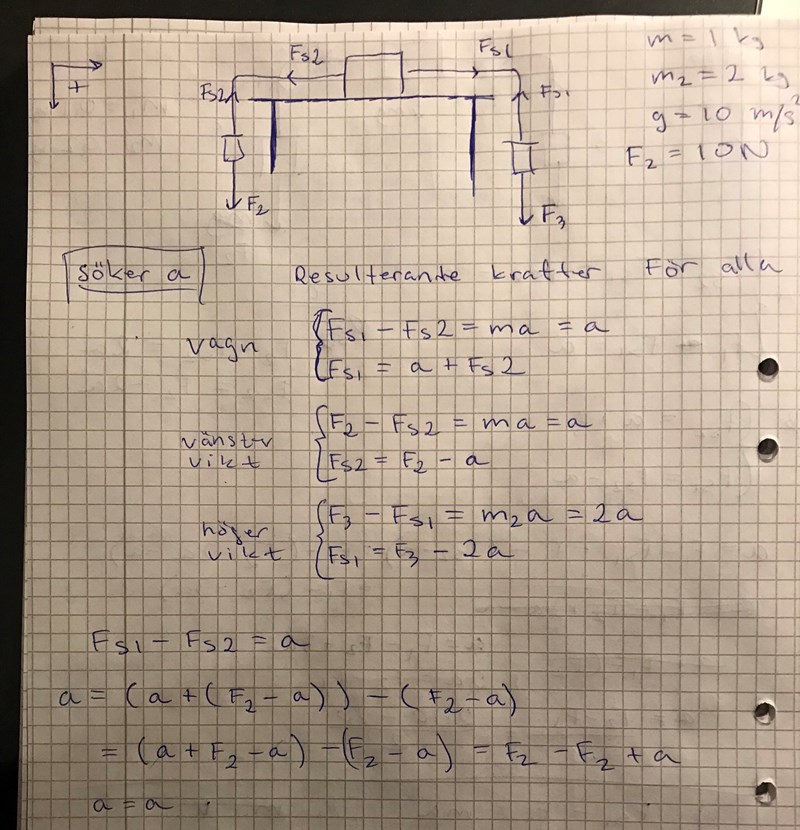 m = 1 kg
m₂ = 2 kg
g = 10 m/s²
F₂ = 10N
+
Fs2
Fs1
Fs2
Fs1
F₂
F₃
Söker a
Resulterande krafter För alla
vagn
Fs1 - Fs2 = ma = a
Fs1 = a + Fs2
vänster vikt
F₂ - Fs2 = ma = a
Fs2 = F₂ - a
höger vikt
F₃ - Fs1 = m₂a = 2a
Fs1 = F₃ - 2a
Fs1 - Fs2 = a
a = (a + (F₂ - a)) - (F₂ - a)
= (a + F₂ - a) - (F₂ - a) = F₂ - F₂ + a
a = a